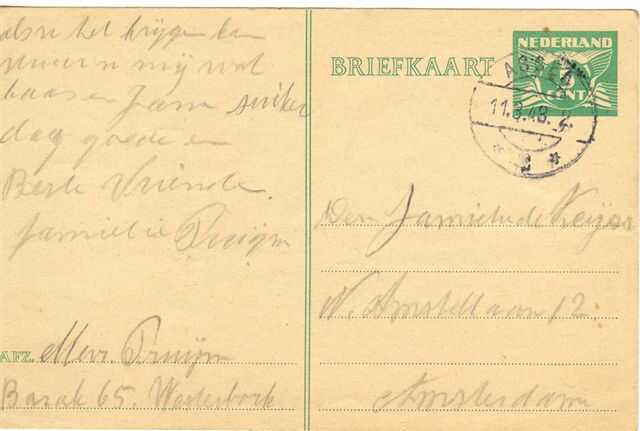 als u het krijgen kan
stuur u mij wat
kaas en Jam suiker
dag goede en
Beste Vriende.
familie Pruijm
AFZ. Mevr. Pruijm
Barak 65. Westerbork
BRIEFKAART
NEDERLAND
CENT
ASSEN
11.8.43.
2
Den Familie de Keijzer
N. Amstellaan 12.
Amsterdam